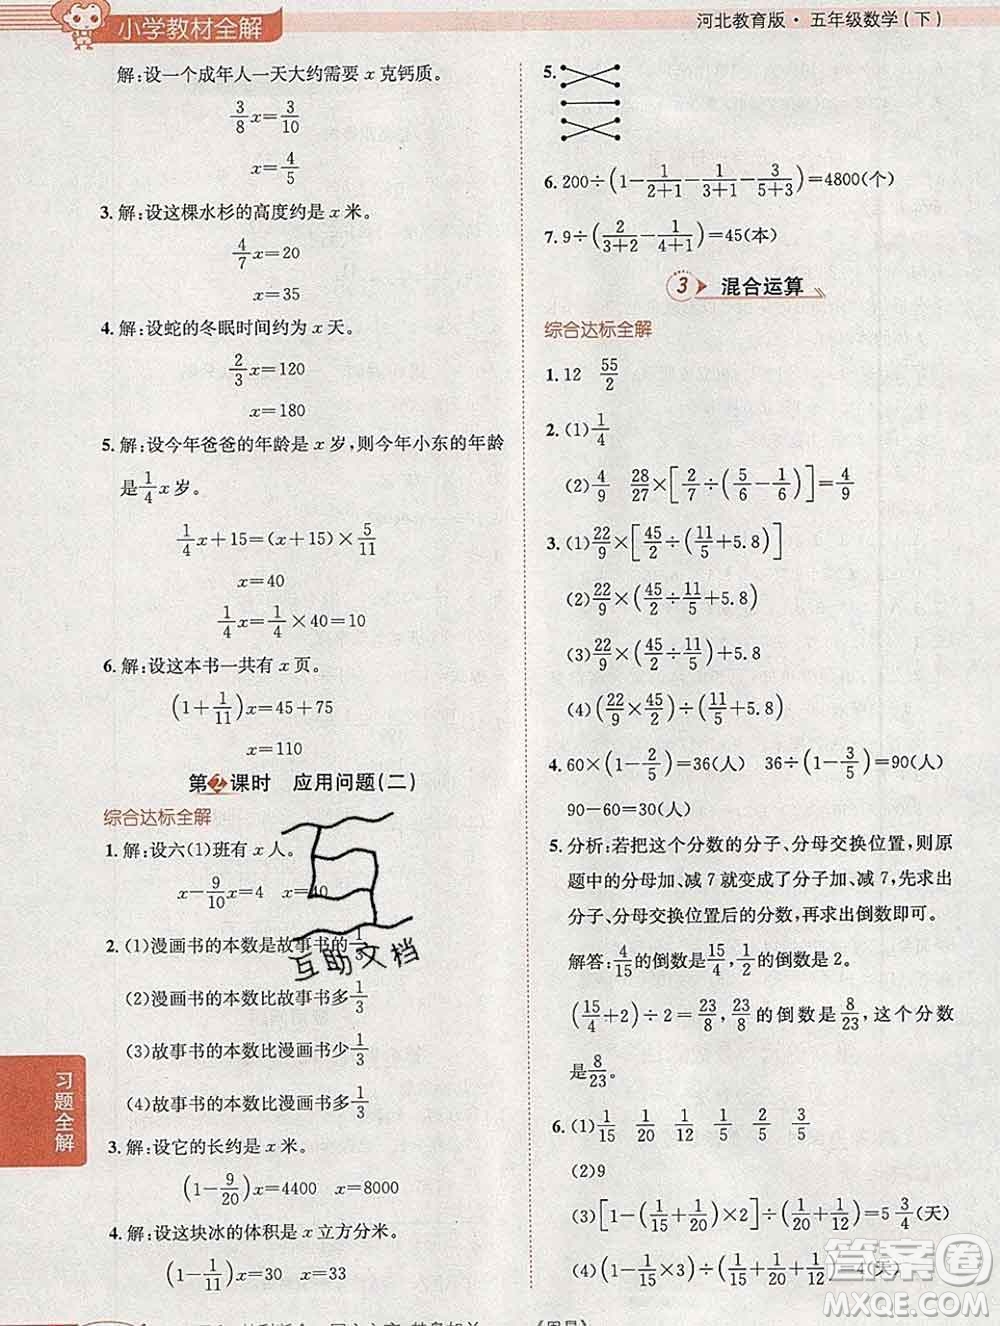 小学教材全解
河北教育版·五年级数学(下)
解:设一个成年人一天大约需要 x 克钙质。
3/8 x=3/10
x=4/5
3. 解:设这棵水杉的高度约是 x 米。
4/7 x=20
x=35
4. 解:设蛇的冬眠时间约为 x 天。
2/3 x=120
x=180
5. 解:设今年爸爸的年龄是 x 岁,则今年小东的年龄
是 1/4 x 岁。
1/4 x+15=(x+15)×5/11
x=40
1/4 x=1/4×40=10
6. 解:设这本书一共有 x 页。
(1+1/11)x=45+75
x=110
第2课时 应用问题(二)
综合达标全解
1. 解:设六(1)班有 x 人。
x-9/10 x=4 x=40
2. (1)漫画书的本数是故事书的 1/3
(2)漫画书的本数比故事书多 1/3
(3)故事书的本数比漫画书少 1/3
(4)故事书的本数比漫画书多 1/3
3. 解:设它的长约是 x 米。
(1-9/20)x=4400 x=8000
4. 解:设这块冰的体积是 x 立方分米。
(1-1/11)x=30 x=33
互助文档
习题全解
5.
6. 200÷(1-1/(2+1)-1/(3+1)-3/(5+3))=4800(个)
7. 9÷(2/(3+2)-1/(4+1))=45(本)
3 混合运算
综合达标全解
1. 12 55/2
2. (1)1/4
(2)4/9 28/27×[2/7÷(5/6-1/6)]=4/9
3. (1)22/9×[45/2÷(11/5+5.8)]
(2)22/9×(45/2÷11/5+5.8)
(3)22/9×(45/2÷11/5)+5.8
(4)(22/9×45/2)÷(11/5+5.8)
4. 60×(1-2/5)=36(人) 36÷(1-3/5)=90(人)
90-60=30(人)
5. 分析:若把这个分数的分子、分母交换位置,则原
题中的分母加、减 7 就变成了分子加、减 7,先求出
分子、分母交换位置后的分数,再求出倒数即可。
解答:4/15的倒数是15/4,1/2的倒数是 2。
(15/4+2)÷2=23/8,23/8的倒数是8/23,这个分数
是8/23。
6. (1)1/15 1/20 1/12 2/15 1/5 1/20 1/5
(2)9
(3)[1-(1/15+1/20)×2]÷(1/12+1/20)=5 3/4(天)
(4)(1-1/15×3)÷(1/15+1/20+1/12)=4(天)
答案圈
MXQE.COM